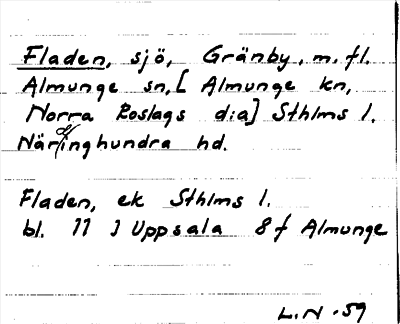 Fladen, sjö, Gränby, m. fl.
Almunge sn, [ Almunge kn,
Norra Roslags d:a] Sthlms l.
Närdinghundra hd.
Fladen, ek Sthlms l.
bl. 11 J Uppsala 8 f Almunge
L.N -59